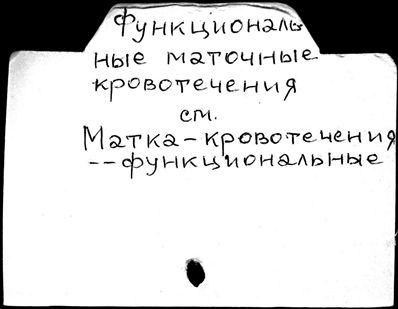 Функциональ-
ные маточные
кровотечения
см.
Матка-кровотечения
--функциональные